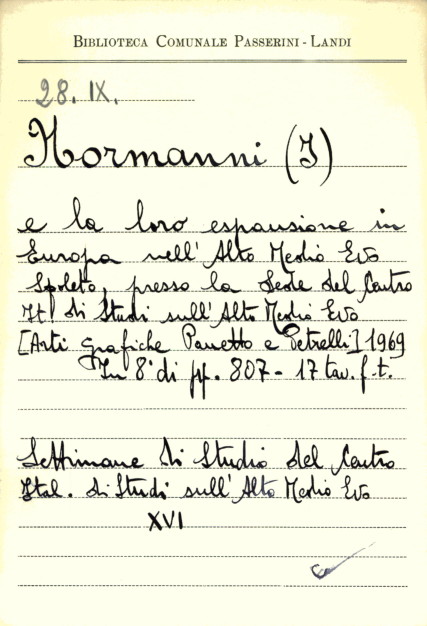 BIBLIOTECA COMUNALE PASSERINI - LANDI
28. IX.
Normanni (I)
e la loro espansione in
Europa nell' Alto Medio Evo
Spoleto, presso la Sede del Centro
It. di Studi sull' Alto Medio Evo
[Arti grafiche Panetto e Petrelli] 1969
In 8° di pp. 807 - 17 tav. f. t.
Settimane di Studio del Centro
Ital. di Studi sull' Alto Medio Evo
XVI